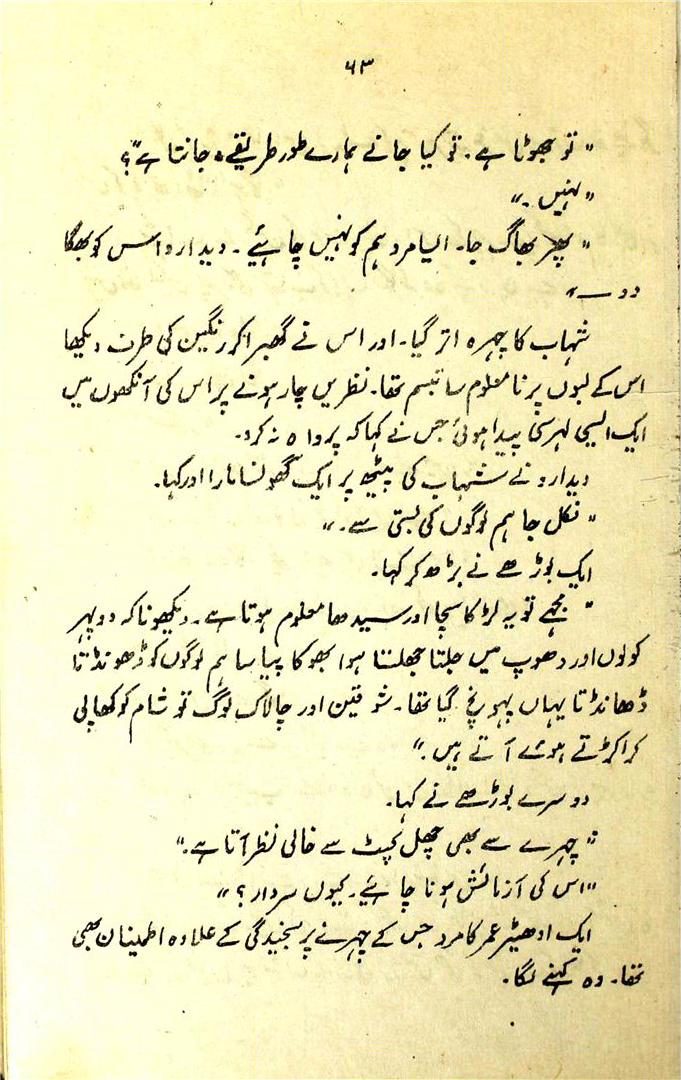 ۶۳
"تو جھوٹا ہے۔ تو کیا جانے ہمارے طور طریقے، جانتا ہے"؟
"نہیں۔"
"پھر بھاگ جا۔ ایسا مرد ہم کو نہیں چاہئیے۔ دیدارو اس کو بھگا
دو ــــ"
شہاب کا چہرہ اتر گیا۔ اور اس نے گھبرا کر رنگین کی طرف دیکھا
اس کے لبوں پر نا معلوم سا تبسم تھا۔ نظریں چار ہونے پر اس کی آنکھوں میں
ایک ایسی لہر سی پیدا ہوئی جس نے کہا کہ پرواہ نہ کرو۔
دیدارو نے شہاب کی پیٹھ پر ایک گھونسا مارا اور کہا۔
"نکل جا ہم لوگوں کی بستی سے۔"
ایک بوڑھے نے بڑھ کر کہا۔
"مجھے تو یہ لڑکا سچا اور سیدھا معلوم ہوتا ہے۔ دیکھو نا کہ دوپہر
کو لوں اور دھوپ میں جلتا جھلستا ہوا بھوکا پیاسا ہم لوگوں کو ڈھونڈتا
ڈھانڈتا یہاں پہونچ گیا تھا۔ شوقین اور چالاک لوگ تو شام کو کھا پی
کر اکڑتے ہوئے آتے ہیں۔"
دوسرے بوڑھے نے کہا۔
"چہرے سے بھی چھل کپٹ سے خالی نظر آتا ہے۔"
"اس کی آزمائش ہونا چاہئیے۔ کیوں سردار؟"
ایک ادھیڑ عمر کا مرد جس کے چہرے پر سنجیدگی کے علاوہ اطمینان بھی
تھا۔ وہ کہنے لگا۔